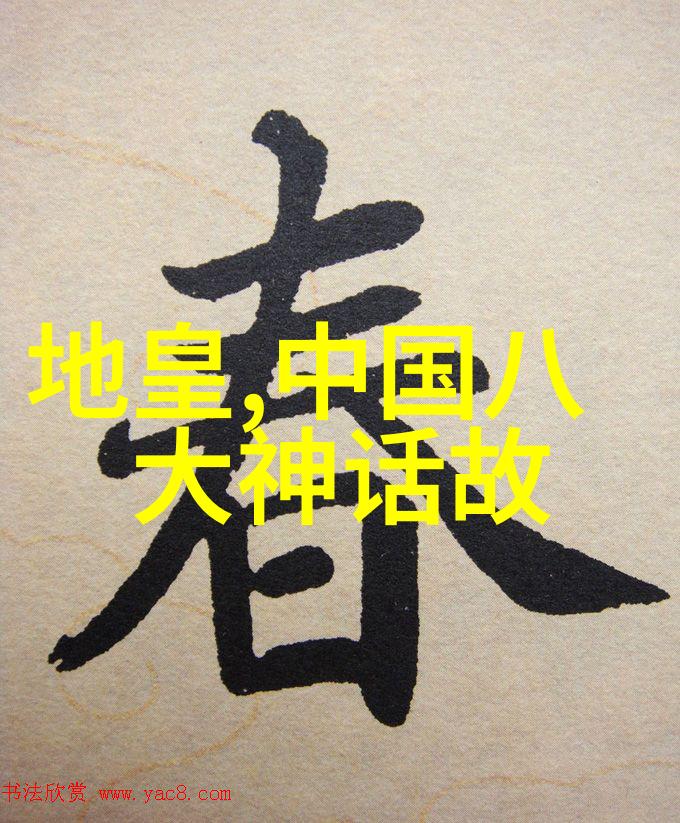 春
地皇,中国八
大神话故
书法欣赏 www.yac8.com